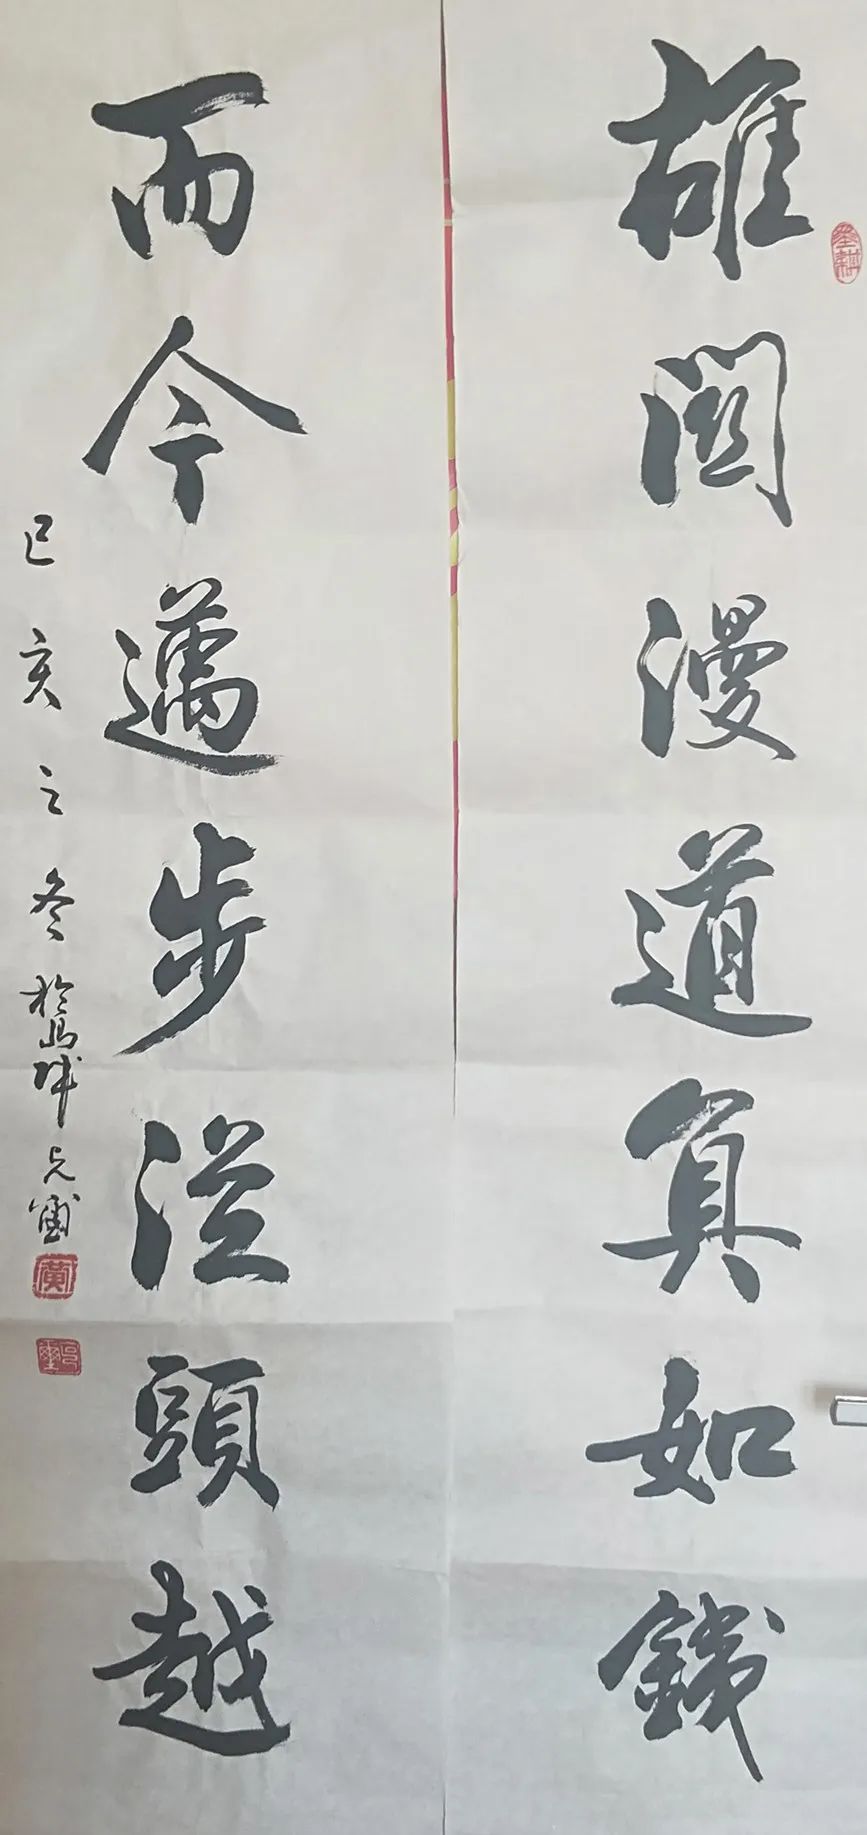 雄関漫道真如鐵
而今邁步從頭越
己亥之冬於
黃